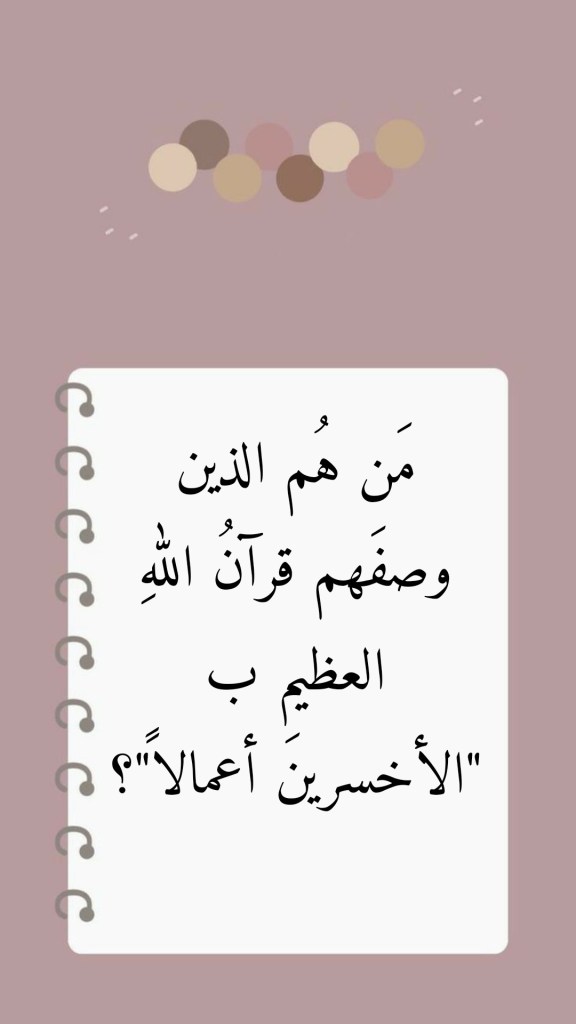 مَن هُم الذين
وصفَهم قرآنُ اللهِ
العظيمِ ب
"الأخسرينَ أعمالاً"؟